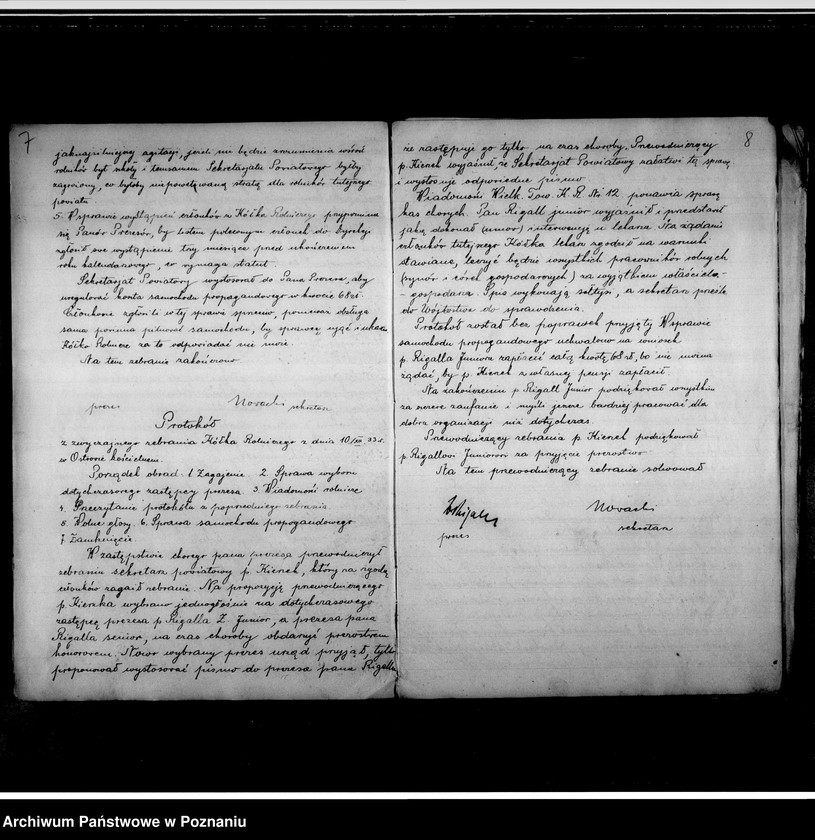 7
jaknajsilniejszej agitacji, jeżeli nie będzie zrozumienia wśród
rolników byt szkoły i temsamem Sekretarjatu Powiatowego byłby
zagrożony, co byłoby niepowetowaną stratą dla rolników tutejszego
powiatu.
5. W sprawie wystąpień członków z Kółka Rolniczego przypomina
się Panów Prezesów, by listem poleconym członek do Dyrekcji
zgłosił swe wystąpienie trzy miesiące przed ukończeniem
roku kalendarzowego, co wymaga statut.
Sekretarjat Powiatowy wystosował do Pana Prezesa, aby
uregulować konto samochodu propagandowego w kwocie 68 zł.
Członkowie zgłosili w tej sprawie sprzeciw, ponieważ obsługa
sama powinna pilnować samochodu, by sprawcę ująć i ukarać
Kółko Rolnicze za to odpowiadać nie może.
Na tem zebranie zakończono
prezes Nowacki sekretarz
Protokół
z zwyczajnego zebrania Kółka Rolniczego z dnia 10/XII 33 r.
w Ostrowie kościelnem.
Porządek obrad: 1. Zagajenie 2. Sprawa wyboru
dotychczasowego zastępcy prezesa 3. Wiadomości rolnicze
4. Przeczytanie protokółu z poprzedniego zebrania
5. Wolne głosy. 6. Sprawa samochodu propagandowego
7. Zamknięcie.
W zastępstwie chorego pana prezesa przewodniczył
zebraniu sekretarz powiatowy p. Kienek, który za zgodą
członków zagaił zebranie. Na propozycję przewodniczącego
p. Kienka wybrano jednogłośnie na dotychczasowego
zastępcę prezesa p. Rigalla Z. Junior, a prezesa pana
Rigalla senior, na czas choroby obdarzyć prezostwem
honorowem. Nowo wybrany prezes urząd przyjął, tylko
proponował wystosować pismo do prezesa pana Rigalla
8
że zastępuje go tylko na czas choroby. Przewodniczący
p. Kienek wyjaśnił, że Sekretarjat Powiatowy załatwi tą sprawę
i wystosuje odpowiednie pismo.
Wiadomości Wielk. Tow. K. R. Nr 12. ponawia sprawę
kas chorych. Pan Rigall junior wyjaśnił i przedstawił
jaką dokonał (umowę) interwencję u lekarza. Na żądanie
członków tutejszego Kółka lekarz zgodził na warunki
stawiane, leczyć będzie wszystkich pracowników rolnych
(synów i córek gospodarczych) za wyjątkiem właściciela
- gospodarza. Spis wykonają sołtysi, a sekretarz prześle
do Wójtostwa do sprawdzenia.
Protokół został bez poprawek przyjęty. W sprawie
samochodu propagandowego uchwalono na wniosek
p. Rigalla Juniora zapłacić całą kwotę 68 zł, bo nie można
żądać, by p. Kienek z własnej pensji zapłacił.
Na zakończeniu p. Rigall Junior podziękował wszystkim
za szczere zaufanie i myśli jeszcze bardziej pracować dla
dobra organizacji niż dotychczas.
Przewodniczący zebrania p. Kienek podziękował
p. Rigallowi Juniorowi za przyjęcie prezostwa.
Na tem przewodniczący zebranie solwował
ZRigall Nowacki
prezes sekretarz
Archiwum Państwowe w Poznaniu